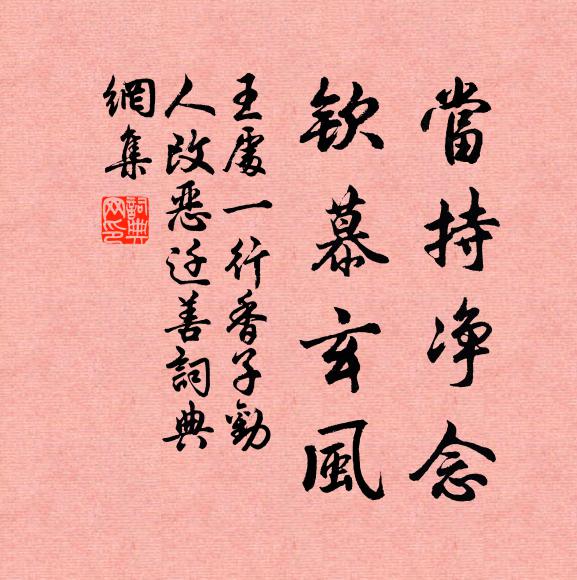 當持净念
欽慕玄風
王處一行香子勸
人改惡迁善詞典
網集
詞典
网印